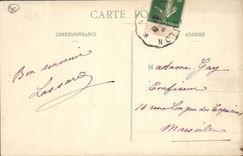 CARTE PO
CORRESPONDANCE
ADRESSE
Bon souvenir
Lassard
Madame Gay
Confiseur
16 rue Longue des Capucins
Marseille